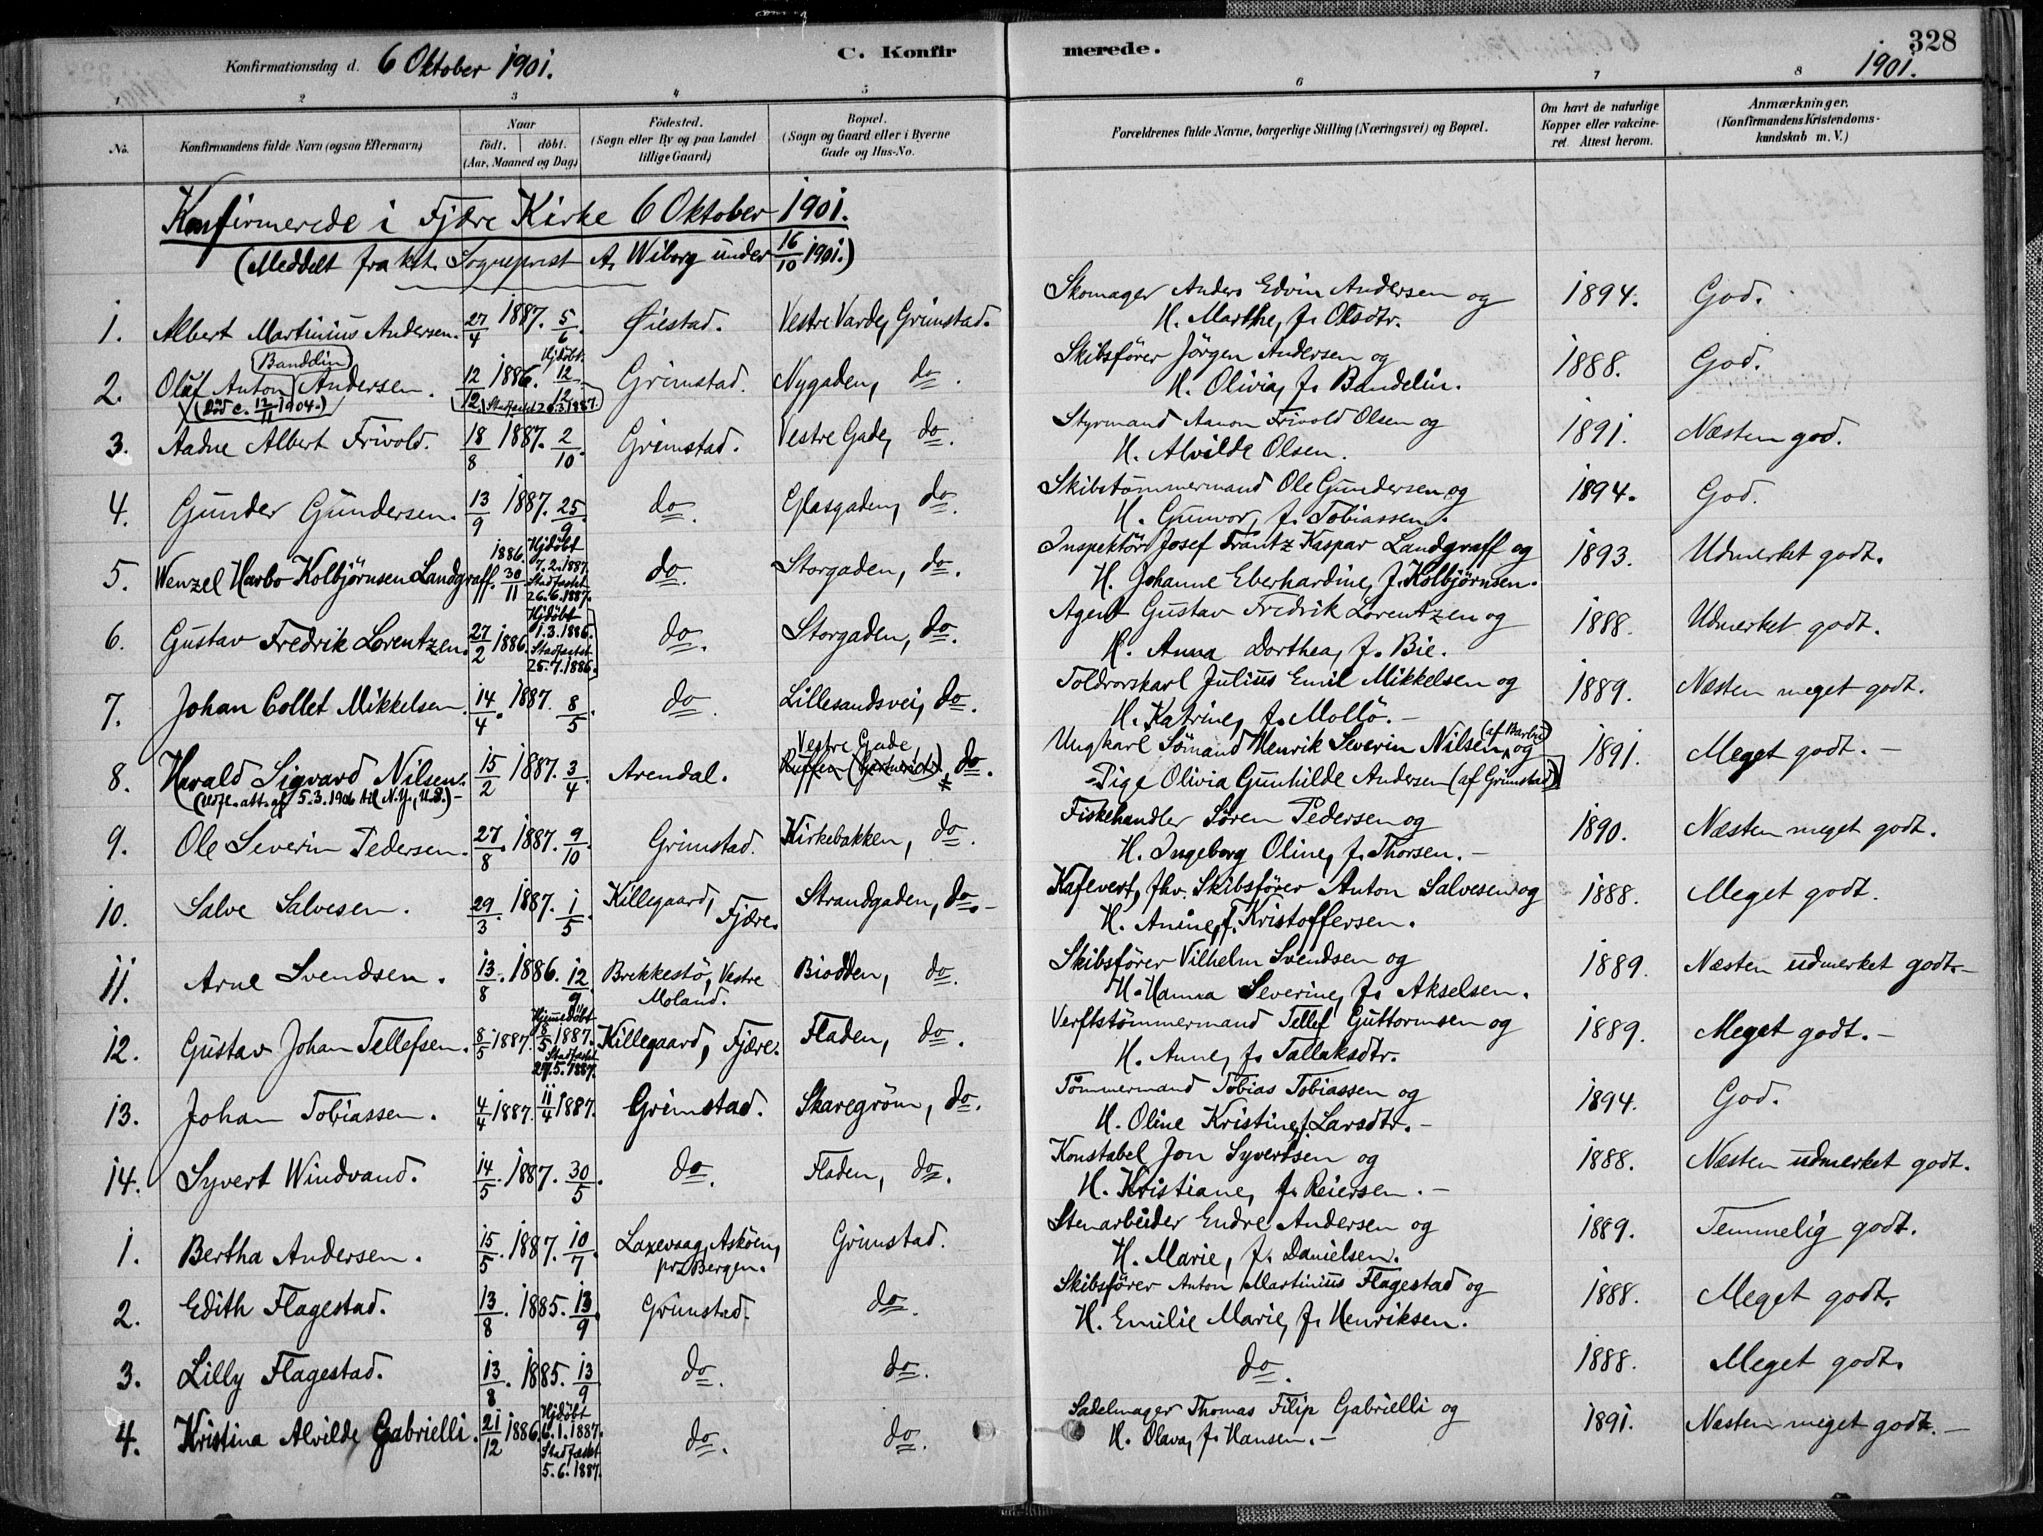 328
Konfirmationsdag d. 6 Oktober 1901. C. Konfirmerede. 1901.
1 2 3 4 5 6 7 8
No. Konfirmandens fulde Navn (ogsaa Efternavn) Naar födt. döbt. (Aar, Maaned og Dag) Födested. (Sogn eller By og paa Landet tillige Gaard) Bopæl. (Sogn og Gaard eller i Byerne Gade og Hus-No. Forældrenes fulde Navne, borgerlige Stilling (Næringsvei) og Bopæl. Om havt de naturlige Kopper eller vakcineret. Attest herom. Anmærkninger. (Konfirmandens Kristendomskundskab m. V.)
Konfirmerede i Fjære Kirke 6 Oktober 1901.
(Meddelt fra kst. Sogneprest A. Wiborg under 16/10 1901.)
1. Albert Martinius Andersen. 27/4 1887. 5/6. Øiestad. Vestre Varde, Grimstad. Skomager Anders Edvin Andersen og H. Marthe, f. Olsdtr. 1894. God.
2. Oluf Anton (Bandelin) Andersen. (Död c. 12/11 1904.) 12/12 1886. Hjdöbt 12/12 (Stadfæstet 20.3.1887.) Grimstad. Nygaden, do. Skibsfører Jörgen Andersen og H. Olivia, f. Bandelin. 1888. God.
3. Aadne Albert Frivold. 18/8 1887. 2/10. Grimstad. Vestre Gade, do. Styrmand Aanon Frivold Olsen og H. Alvilde Olsen. 1891. Næsten god.
4. Gunder Gundersen. 13/9 1887. 25/9. do. Glasgaden, do. Skibstömmermand Ole Gundersen og H. Gunvor, f. Tobiassen. 1894. God.
5. Wenzel Harbo Kolbjørnsen Landgraff. 1886. 30/11 Hjdöbt 7.2.1887. Stadfæstet 26.6.1887. do. Storgaden, do. Inspektör Josef Frantz Kaspar Landgraff og H. Johanne Eberhardine, f. Kolbjørnsen. 1893. Udmerket godt.
6. Gustav Fredrik Lorentzen. 27/2 1886. Hjdöbt 1.3.1886. Stadfæstet 25.7.1886. do. Storgaden, do. Agent Gustav Fredrik Lorentzen og H. Anna Dorthea, f. Bie. 1888. Udmerket godt.
7. Johan Collet Mikkelsen. 14/4. 1887. 8/5. do. Lillesandsvei, do. Toldrorskarl Julius Emil Mikkelsen og H. Katrine, f. Mollö. – 1889. Næsten meget godt.
8. Harald Sigvard Nilsen. (Udfl. att. af 5.3.1906 til N.Y., U.S.) – 15/2 1887. 3/4. Arendal. Vestre Gade, do. Ungkarl Sömand Henrik Severin Nilsen (af Barbu) og Pige Olivia Gunhilde Andersen (af Grimstad) 1891. Meget godt. –
9. Ole Severin Pedersen. 27/8. 1887. 9/10. Grimstad. Kirkebakken, do. Fiskehandler Sören Pedersen og H. Ingeborg Oline, f. Thorsen. – 1890. Næsten meget godt.
10. Salve Salvesen. 29/3. 1887. 1/5. Killegaard, Fjære. Strandgaden, do. – Kafevert, fhv. Skibsfører Anton Salvesen og H. Anine, f. Kristoffersen. 1888. Meget godt.
11. Arne Svendsen. 13/8. 1886. 12/9. Brekkestö, Vestre Moland. Biodden, do. Skibsfører Vilhelm Svendsen og H. Hanna Severine, f. Akselsen. 1889. Næsten udmerket godt. –
12. Gustav Johan Tellefsen. 8/5 1887. Hjemedöbt 8/5 1887. Stadfæstet 29.5.1887. Killegaard, Fjære. Fladen, do. Verftstömmermand Tellef Guttormsen og H. Anne, f. Tallaksdtr. 1889. Meget godt. –
13. Johan Tobiassen. 4/4 1887. 11/4 1887. Grimstad. Skaregröm, do. Tömmermand Tobias Tobiassen og H. Oline Kristine, f. Larsdtr. – 1894. God.
14. Syvert Windvand. 14/5. 1887. 30/5. do. Fladen, do. Konstabel Jon Syvertsen og H. Kristiane, f. Reiersen. – 1888. Næsten udmerket godt.
1. Bertha Andersen. 15/5. 1887. 10/7. Laxevaag, Asköen, pr. Bergen. Grimstad. Stenarbeider Endre Andersen og H. Marie, f. Danielsen. 1889. Temmelig godt.
2. Edith Flagestad. 13/8. 1885. 13/9. Grimstad. do. Skibsfører Anton Martinius Flagestad og H. Emilie Marie, f. Henriksen. 1888. Meget godt.
3. Lilly Flagestad. 13/8. 1885. 13/9. do. do. do. 1888. Meget godt.
4. Kristina Alvilde Gabrielli. 21/12 1886. Hjdöbt 6.1.1887. Stadfæstet 5.6.1887. do. do. Sadelmager Thomas Filip Gabrielli og H. Olava, f. Hansen. – 1891. Næsten meget godt. –